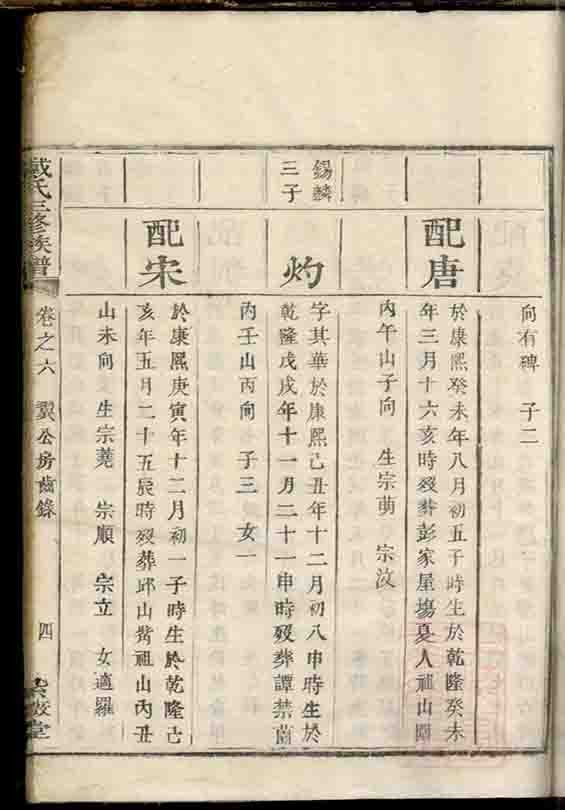 向有碑 子二
配唐
於康熙癸未年八月初五子時生於乾隆癸未
年三月十六亥時歿葬彭家屋塲夏人祖山
丙午山子向 生宗萠 宗汶
錫麟
三子
灼
字其華於康熙己丑年十二月初八申時生於
乾隆戊戌年十一月二十一申時歿葬譚禁
內壬山丙向 子三 女一
配宋
於康熙庚寅年十二月初一子時生於乾隆己
亥年五月二十五辰時歿葬邱山嘴祖山丙丑
山未向 生宗蕘 宗順 宗立 女適羅
戴氏三修族譜
卷之六 翼公房齒錄
四
堂